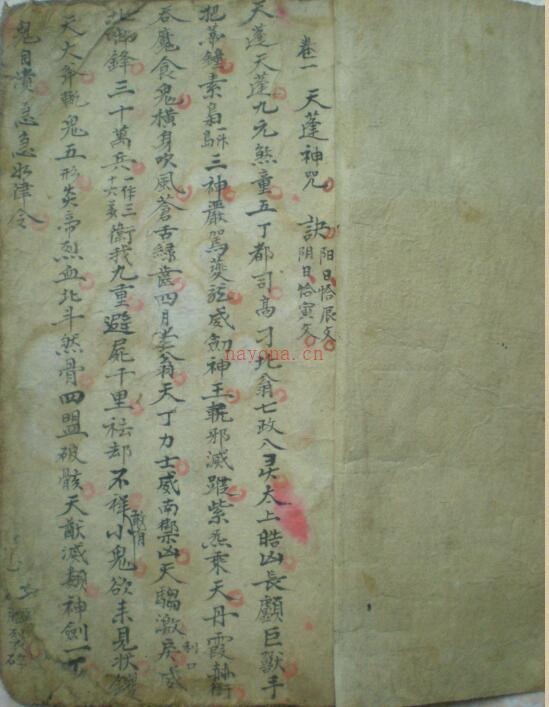 卷一 天蓬神咒 訣 陽日恰辰文 阴日恰寅文
天蓬天蓬九元煞童五丁都司高刁北翁七政八灵太上皓凶長顱巨獸手
把帝鐘素梟三神嚴駕夔龍威劍神王斬邪滅踪紫炁乘天丹霞赫衝
吞魔食鬼橫身吹風蒼舌綠齒四目老翁天丁力士威南禦凶天騶激戾威
北啣鋒三十萬兵衛我九重避屍千里袪却不祥敢有小鬼欲来見狀鑊
天大斧斬鬼五形炎帝烈血北斗然骨四盟破骸天猷滅類神劍一下
鬼自潰急急如律令
nayona.cn